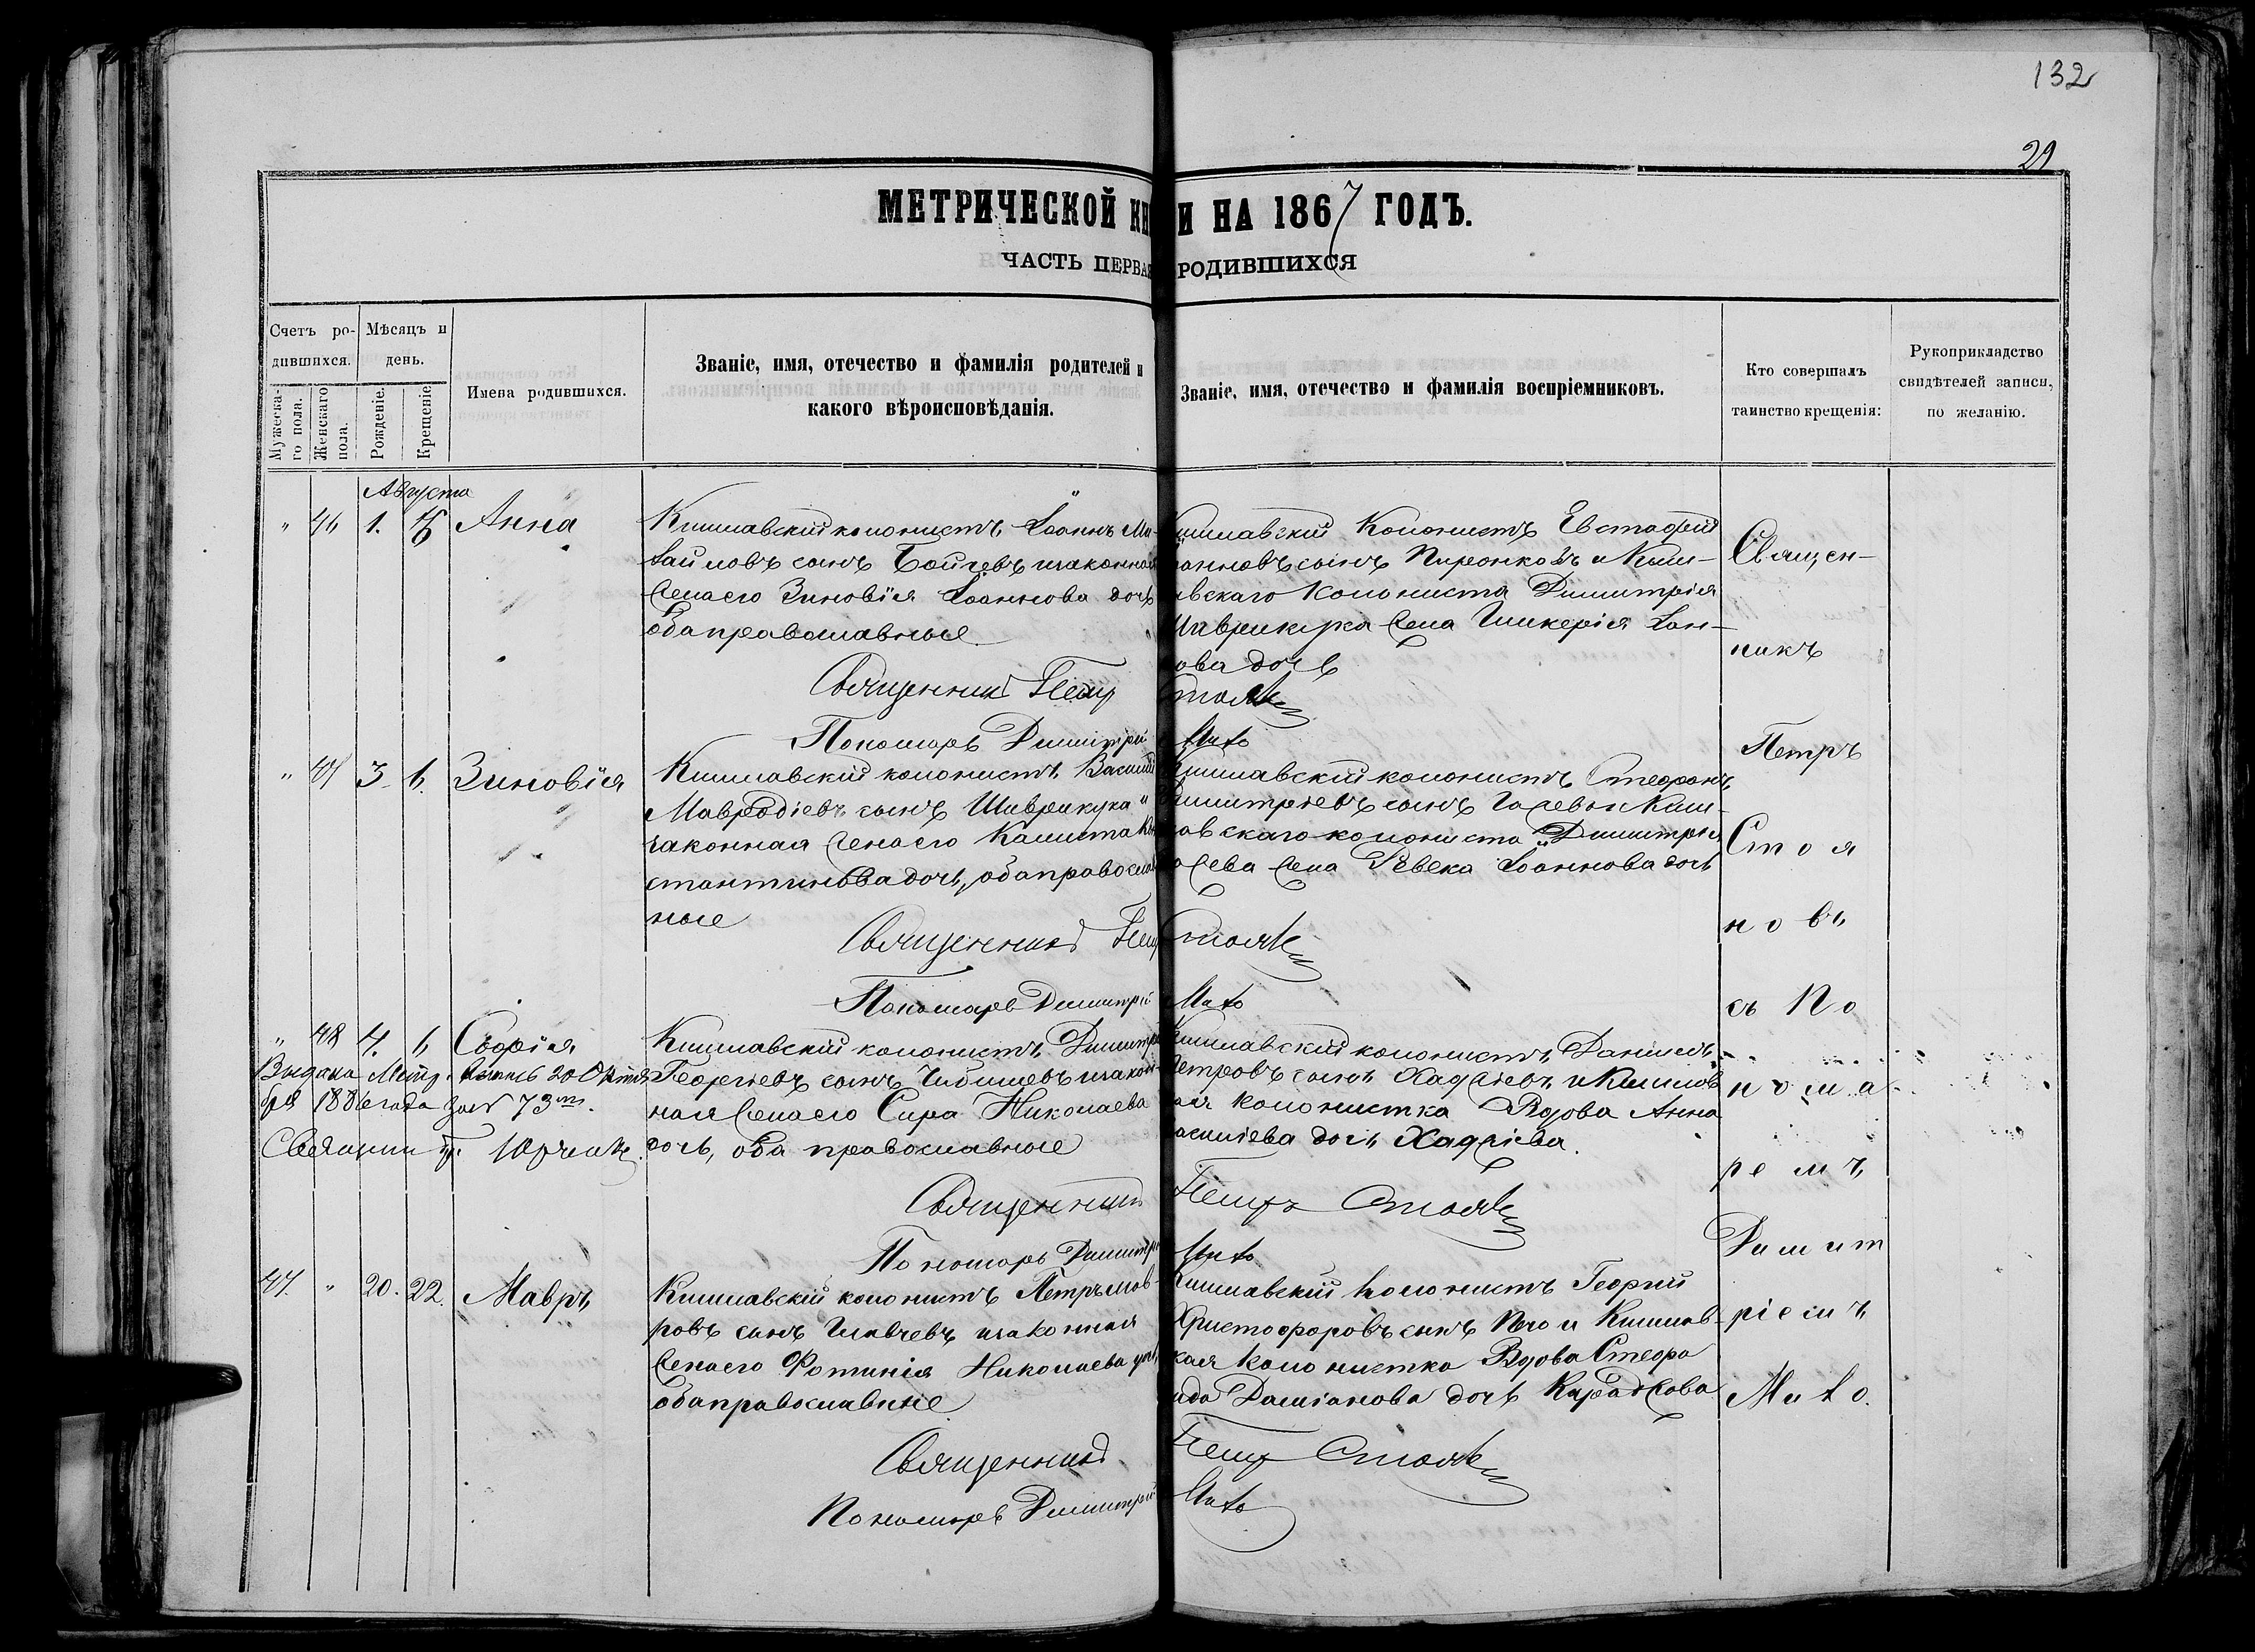 132
29
МЕТРИЧЕСКОЙ КН И НА 1867 ГОДЪ.
ЧАСТЬ ПЕРВАЯ РОДИВШИХСЯ
Счетъ ро-
дившихся.
Мужеска-
го пола.
Женскаго
пола.
Мѣсяцъ и
день.
Рожденіе.
Крещеніе.
Имена родившихся.
Званіе, имя, отечество и фамилія родителей и
какого вѣроисповѣданія.
Званіе, имя, отечество и фамилія воспріемниковъ.
Кто совершалъ
таинство крещенія:
Рукоприкладство
свидѣтелей записи,
по желанію.
Августа
" 46 1. 6 Анна
Кишлавскій колонистъ Іоаннъ Ми-
хайловъ сынъ Бойчевъ изаконная
жена его Зиновія Іоаннова дочь
оба православные
Священникъ Петръ
Пономарь Димитрій
Кишлавскій Колонистъ Евстафій
Іоанновъ сынъ Пиронковъ и Киш-
лавскаго Колониста Димитрія
Шаврикука жена Гликерія Іоан-
нова дочь
Стоянов
Михо
" 47 3. 6. Зиновія
Кишлавскій колонистъ Василій
Мавродіевъ сынъ Шаврикука и
законная жена его Калиста Кон
стантинова дочь, оба православ
ные
Священникъ Петръ
Пономарь Димитрій
Кишлавскій колонистъ Стефанъ
Димитріевъ сынъ и Киш-
лавскаго колониста Димитрія
жена Ревека Іоаннова дочь
Стоянов
Михо
" 48 4. 6 Софія
Выдана Метр. выпись 20 Октя
бря 1886 года за № 73м.
Священ.
Кишлавскій колонистъ Димитрій
Георгіевъ сынъ Чибишевъ изакон
ная жена его Сира Николаева
дочь, оба православные
Священникъ
Пономарь Димитрій
Кишлавскій колонистъ Даніилъ
Петровъ сынъ Хаджіевъ и Кишлав
ая колонистка Вдова Анна
Василіева дочь Хаджіева.
Петръ Стоянов
Михо
47. " 20. 22. Мавръ
Кишлавскій колонистъ Петръ Мав-
ровъ сынъ Главчевъ изаконная
жена его Фотинія Николаева дочь,
оба православные
Священникъ
Пономарь Димитрій
Кишлавскій колонистъ Георгій
Христофоровъ сынъ и Кишлав-
кая колонистка Вдова Стефа
нида Даміанова дочь Караджова
Петръ Стоянов
Михо
Священ-
никъ
Петръ
Стоя
новъ
съ По
нома
ремъ
Димит
ріемъ
Михо.